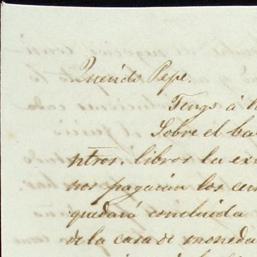 Querido Pepe.
Tengo á
Sobre el
ntros. libros la
nos pagarán los
quedará concluida
de la casa de moneda